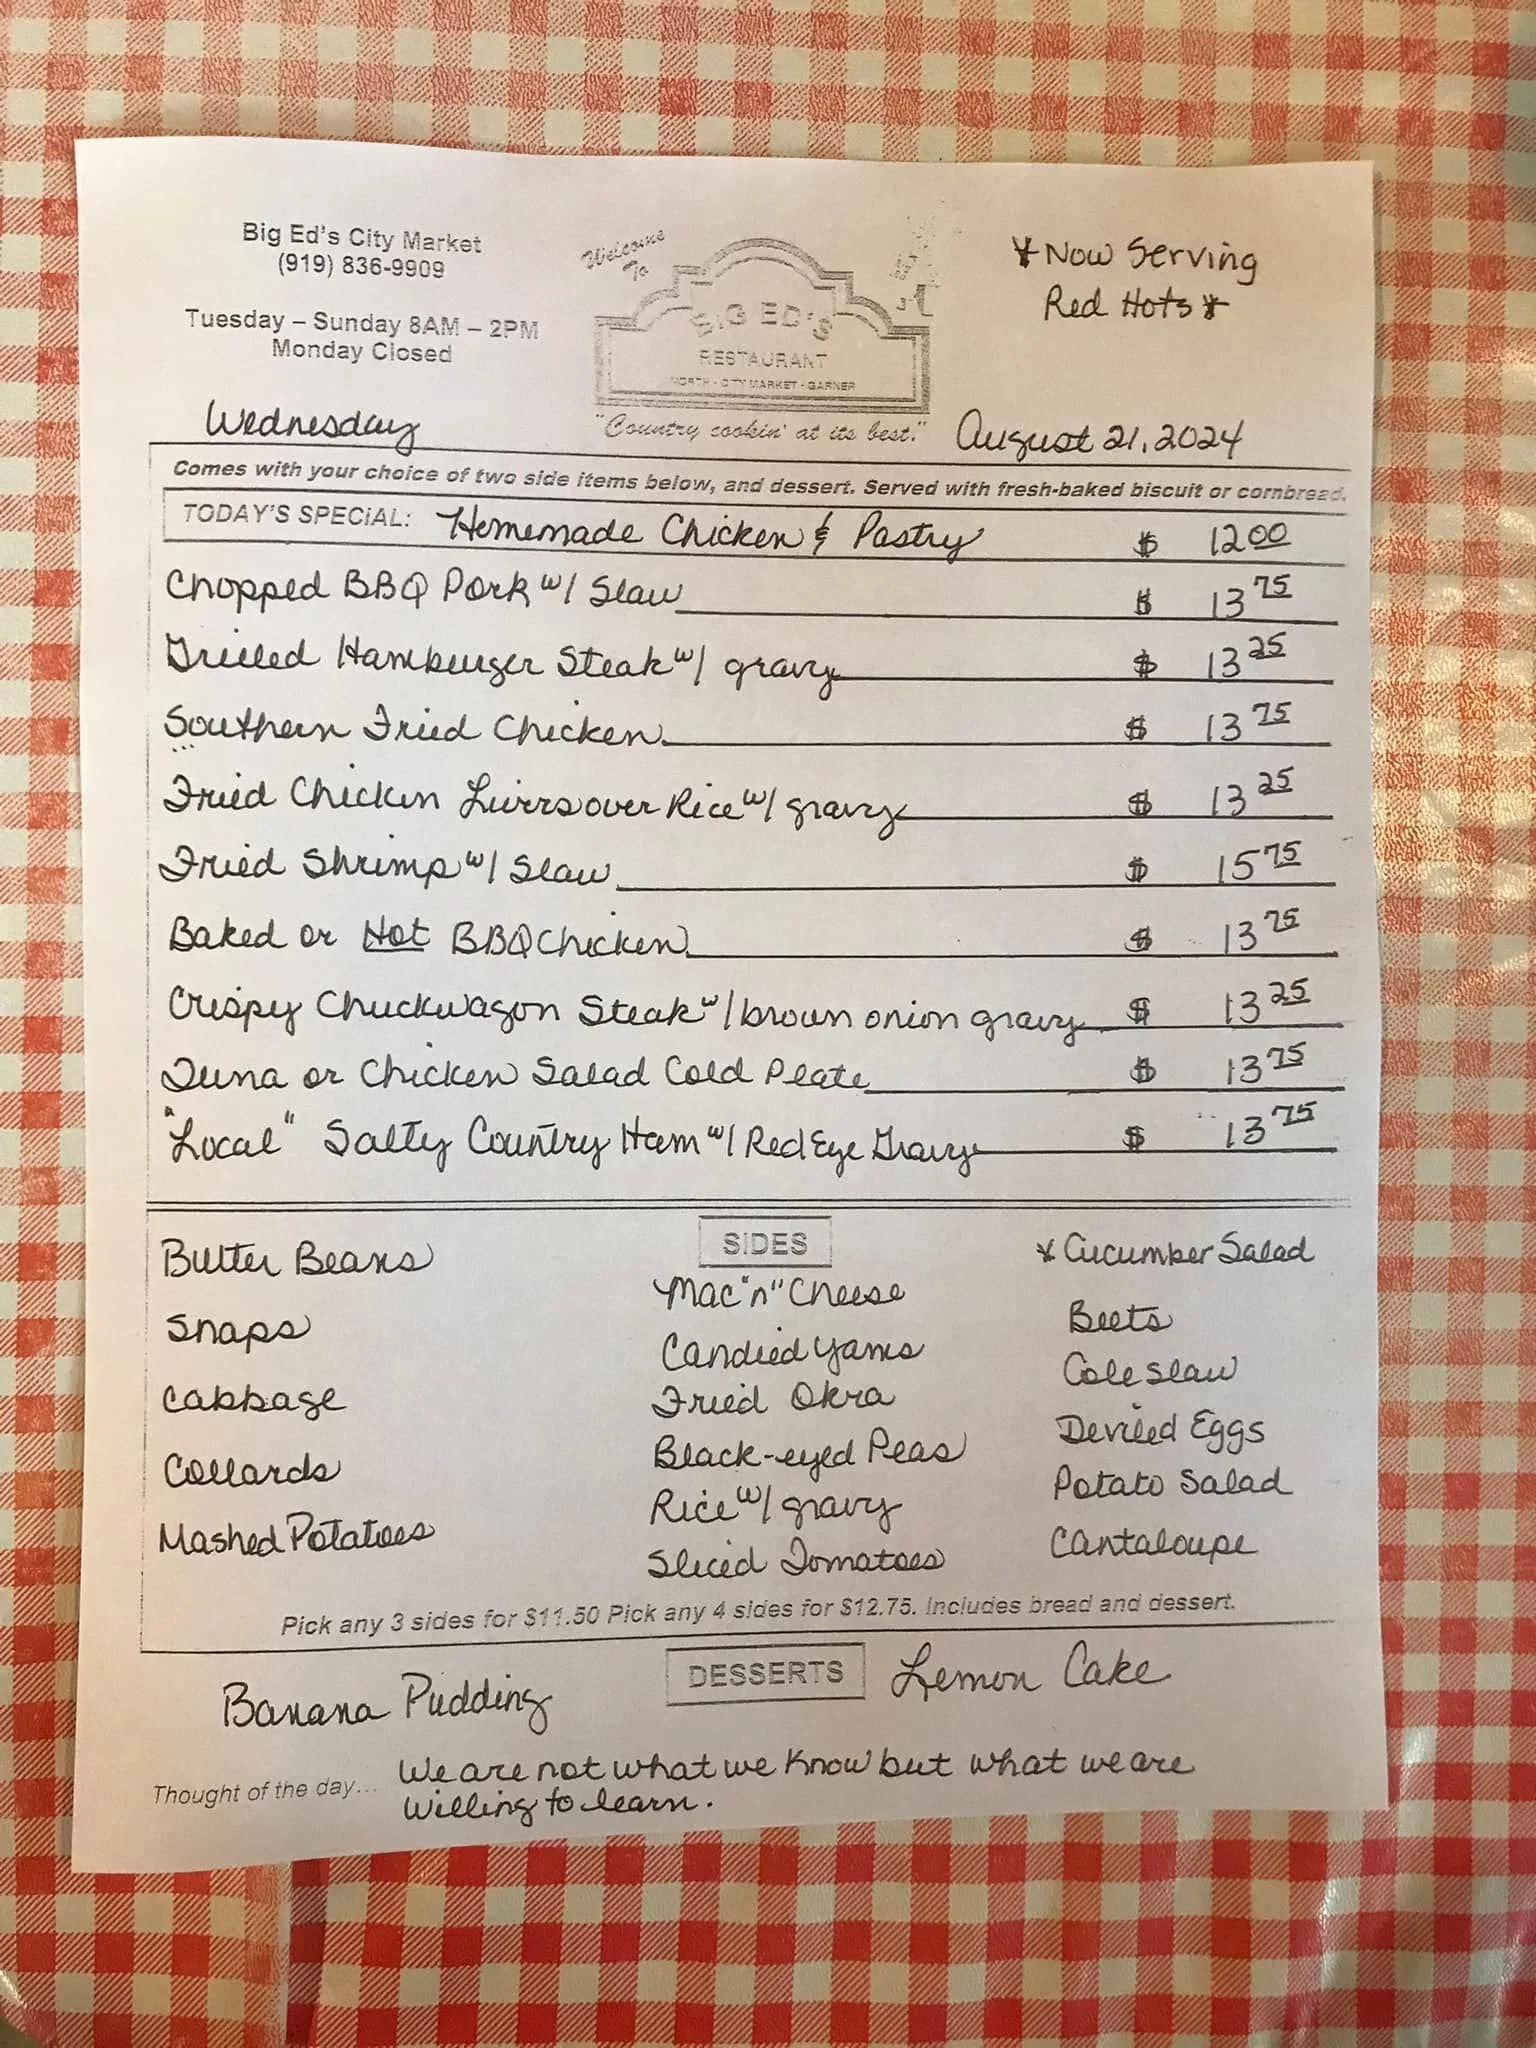 Big Ed's City Market
(919) 836-9909
Tuesday – Sunday 8AM – 2PM
Monday Closed
Welcome
To
BIG ED'S
RESTAURANT
NORTH - CITY MARKET - GARNER
"Country cookin' at its best."
*Now Serving
Red Hots*
Wednesday
August 21, 2024
Comes with your choice of two side items below, and dessert. Served with fresh-baked biscuit or cornbread.
TODAY'S SPECIAL: Homemade Chicken & Pastry $ 12.00
Chopped BBQ Pork w/ Slaw $ 13 75
Grilled Hamburger Steak w/ gravy $ 13 25
Southern Fried Chicken $ 13 75
Fried Chicken Livers over Rice w/ gravy $ 13 25
Fried Shrimp w/ Slaw $ 15 75
Baked or Hot BBQ Chicken $ 13 75
Crispy Chuckwagon Steak w/ brown onion gravy $ 13 25
Tuna or Chicken Salad Cold Plate $ 13 75
"Local" Salty Country Ham w/ Red Eye Gravy $ 13 75
SIDES
Butter Beans
Snaps
Cabbage
Collards
Mashed Potatoes
Mac "n" Cheese
Candied Yams
Fried Okra
Black-eyed Peas
Rice w/ gravy
Sliced Tomatoes
*Cucumber Salad
Beets
Cole slaw
Deviled Eggs
Potato Salad
Cantaloupe
Pick any 3 sides for $11.50 Pick any 4 sides for $12.75. Includes bread and dessert.
DESSERTS
Banana Pudding
Lemon Cake
Thought of the day... We are not what we know but what we are
willing to learn.